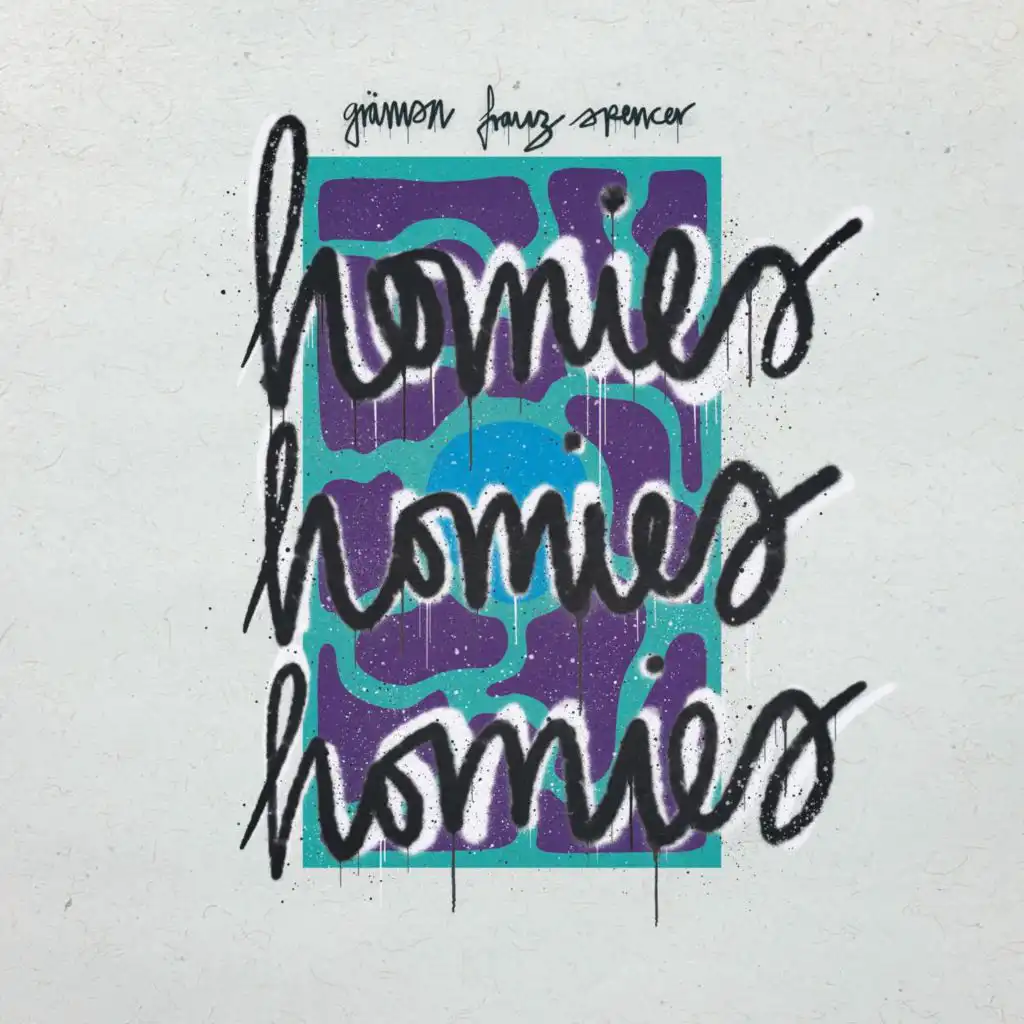 grämsn franz spencer
homies
homies
homies